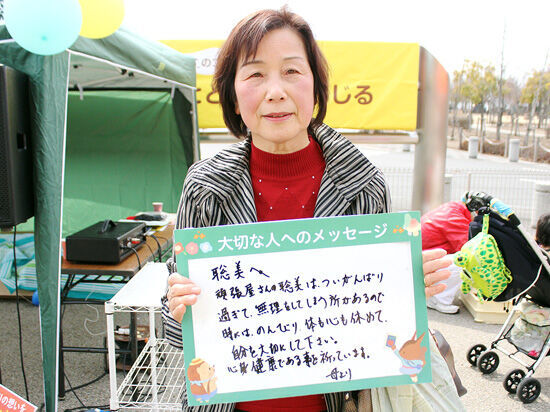 大切な人へのメッセージ
聡美へ
頑張屋さんの聡美は、ついがんばり
過ぎて、無理をしてしまう所があるので
時には、のんびり、体も心も休めて、
自分を大切にして下さい。
心身健康である事を祈っています。
母より